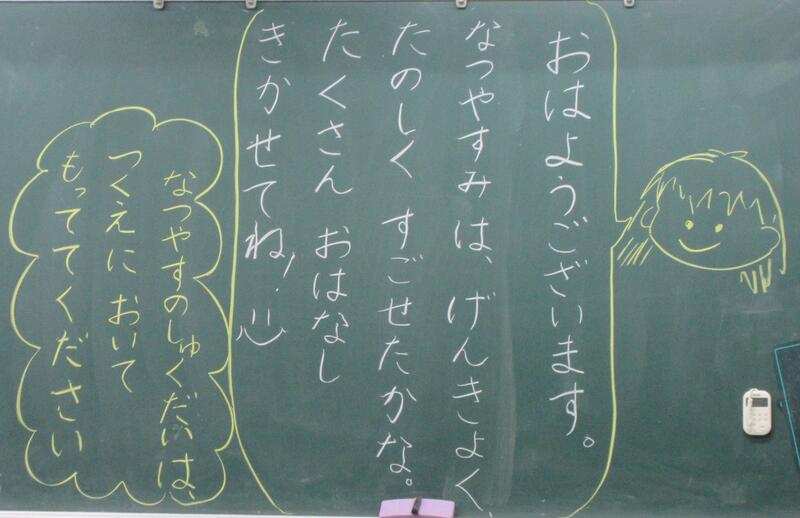 おはようございます。
なつやすみは、げんきよく、
たのしく すごせたかな。
たくさん おはなし
きかせてね！
なつやすのしゅくだいは、
つくえに おいて
もっててください